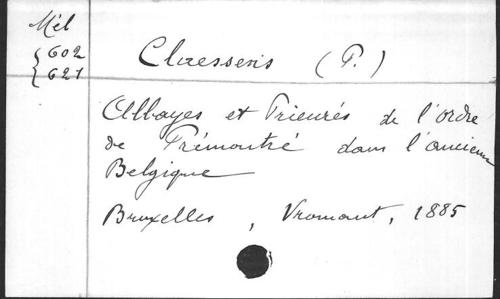 Mél
602
621
Claessens (P.)
Abbayes et Prieurés de l'ordre
de Prémontré dans l'ancienne
Belgique
Bruxelles, Vromant, 1885